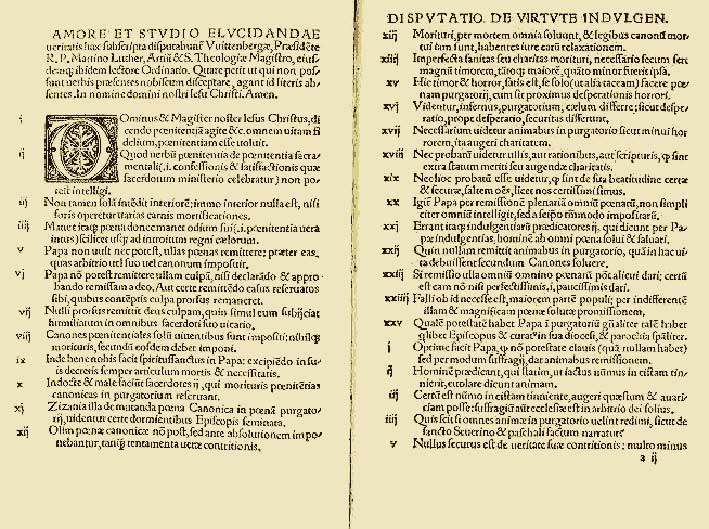 AMORE ET STVDIO ELVCIDANDAE
ueritatis hæc subscripta disputabunť Vuittenbergæ, Præsidēte
R. P. Martino Luther, Artiū & S. Theologiæ Magistro, eius-
demq; ibidem lectore Ordinatio. Quare petit ut qui non pos-
sunt uerbis præsentes nobiscum disceptare, agant id literis ab-
sentes. In nomine domini nostri Iesu Christi. Amen.
i DOminus & Magister noster Iesus Christus, di-
cendo pœnitentiā agite &c. omnem uitam fi
delium, pœnitentiam esse uoluit.
ij Quod uerbū pœnitentia de pœnitentia sacra-
mentali (.i. confessionis & satisfactionis quæ
sacerdotum ministerio celebratur) non po-
test intelligi.
iij Non tamen solā intēdit interiorē: immo interior nulla est, nisi
foris operetur uarias carnis mortificationes.
iiij Manet itaq; pœna donec manet odium sui (.i. pœnitentia uera
intus) scilicet usq; ad introitum regni cælorum.
v Papa non uult nec potest, ullas pœnas remittere: præter eas,
quas arbitrio uel suo uel canonum imposuit.
vj Papa nō potest remittere ullam culpā, nisi declarādo & appro-
bando remissam a deo. Aut certe remittēdo casus reseruatos
sibi, quibus contēptis culpa prorsus remaneret.
vij Nulli prorsus remittit deus culpam, quin simul eum subijciat
humiliatum in omnibus sacerdoti suo uicario.
viij Canones pœnitentiales solū uiuentibus sunt impositi: nihilq;
morituris, secundū eosdem debet imponi.
ix Inde bene nobis facit spiritussanctus in Papa: excipiēdo in su-
is decretis semper articulum mortis & necessitatis.
x Indocte & male faciūt sacerdotes ij, qui morituris pœnitētias
canonicas in purgatorium reseruant.
xj Zizania illa de mutanda pœna Canonica in pœnā purgato-
rij, uidentur certe dormientibus Episcopis seminata.
xij Olim pœnæ canonicæ nō post, sed ante absolutionem impo-
nebantur, tanq̃ tentamenta ueræ contritionis.
DISPVTATIO. DE VIRTVTE INDVLGEN.
xiij Morituri, per mortem omnia soluunt, & legibus canonū mor-
tui iam sunt, habentes iure earū relaxationem.
xiiij Imperfecta sanitas seu charitas morituri, necessario secum fert
magnū timorem, tātoq; maiorē, quāto minor fuerit ipsa.
xv Hic timor & horror, satis est, se solo (ut alia taceam) facere pœ-
nam purgatorij, cum sit proximus desperationis horrori.
xvj Videntur, infernus, purgatorium, cælum differre: sicut despe-
ratio, prope desperatio, securitas differunt.
xvij Necessarium uidetur animabus in purgatorio sicut minui hor-
rorem, ita augeri charitatem.
xviij Nec probatū uidetur ullis, aut rationibus, aut scripturis, q̃ sint
extra statum meriti seu augendæ charitatis.
xix Nec hoc probatū esse uidetur, q̃ sint de sua beatitudine certæ
& securæ, saltem oēs, licet nos certissimi simus.
xx Igiť Papa per remissionē plenariā omniū pœnarū, non simpli
citer omniū intelligit, sed a seipso tātūmodo impositarū.
xxj Errant itaq; indulgentiarū prædicatores ij, qui dicunt per Pa-
pæ indulgentias, hominē ab omni pœna solui & saluari.
xxij Quin nullam remittit animabus in purgatorio, quā in hac ui-
ta debuissent secundum Canones soluere.
xxiij Si remissio ulla omniū omnino pœnarū pōt alicui dari; certū
est eam nō nisi perfectissimis, i. paucissimis dari.
xxiiij Falli ob id necesse est, maiorem partē populi; per indifferentē
illam & magnificam pœnæ solutæ promissionem.
xxv Qualē potestatē habet Papa ī purgatoriū gñaliter talē habet
q̃libet Episcopus & curatus in sua diocesi, & parochia sp̄āliter.
i Optime facit Papa, q̃ nō potestate clauis (quā nullam habet)
sed per modum suffragij, dat animabus remissionem.
ij Hominē prædicant, qui statim, ut iactus nūmus in cistam tin-
nierit, euolare dicunt animam.
iij Certū est nūmo in cistam tinniente, augeri quæstum & auari-
ciam posse: suffragiū aūt ecclesiæ est in arbitrio dei solius.
iiij Quis scit si omnes animæ in purgatorio uelint redimi, sicut de
sancto Seuerino & paschali factum narratur.
v Nullus securus est de ueritate suæ contritionis: multo minus
a ij